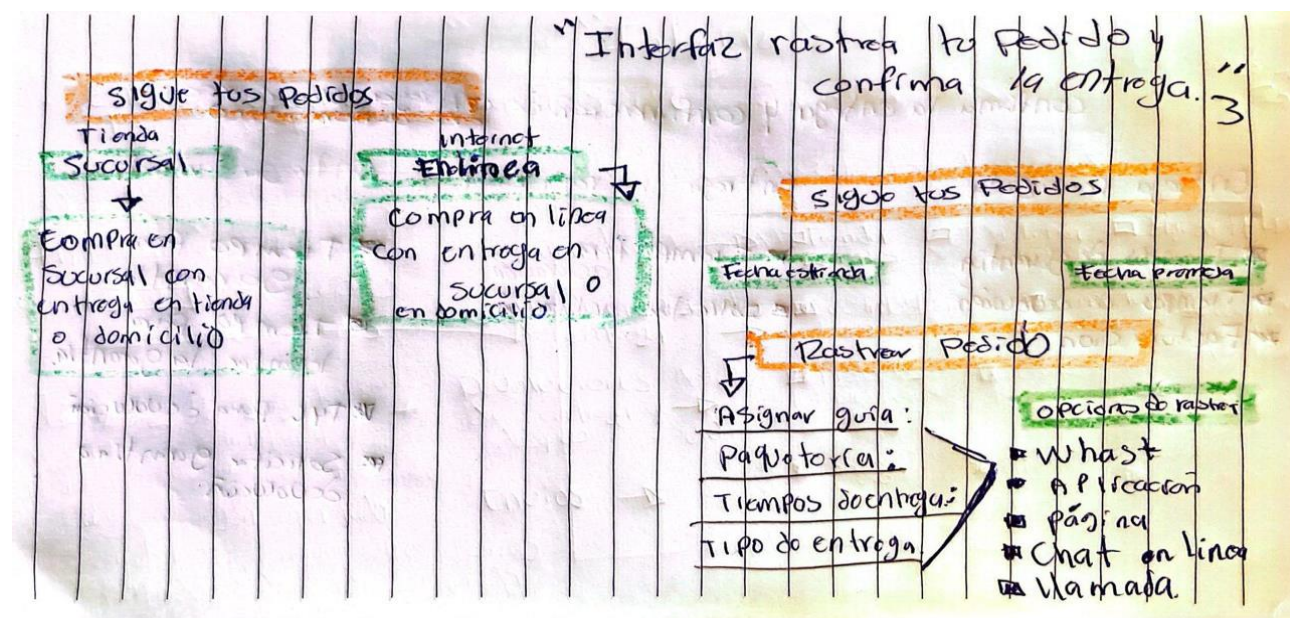 "Interfaz rastrea tu pedido y
confirma la entrega."
3
sigue tus pedidos
Tienda
Sucursal
Compra en
sucursal con
entrega en tienda
o domicilio
internet
En línea
compra en línea
con entrega en
sucursal o
en domicilio
sigue tus Pedidos
Fecha estimada
Fecha promesa
Rastrear Pedido
Asignar guía:
paquetería:
Tiempos de entrega:
Tipo de entrega
opciones de rastreo
Whast
Aplicación
página
Chat en línea
llamada.